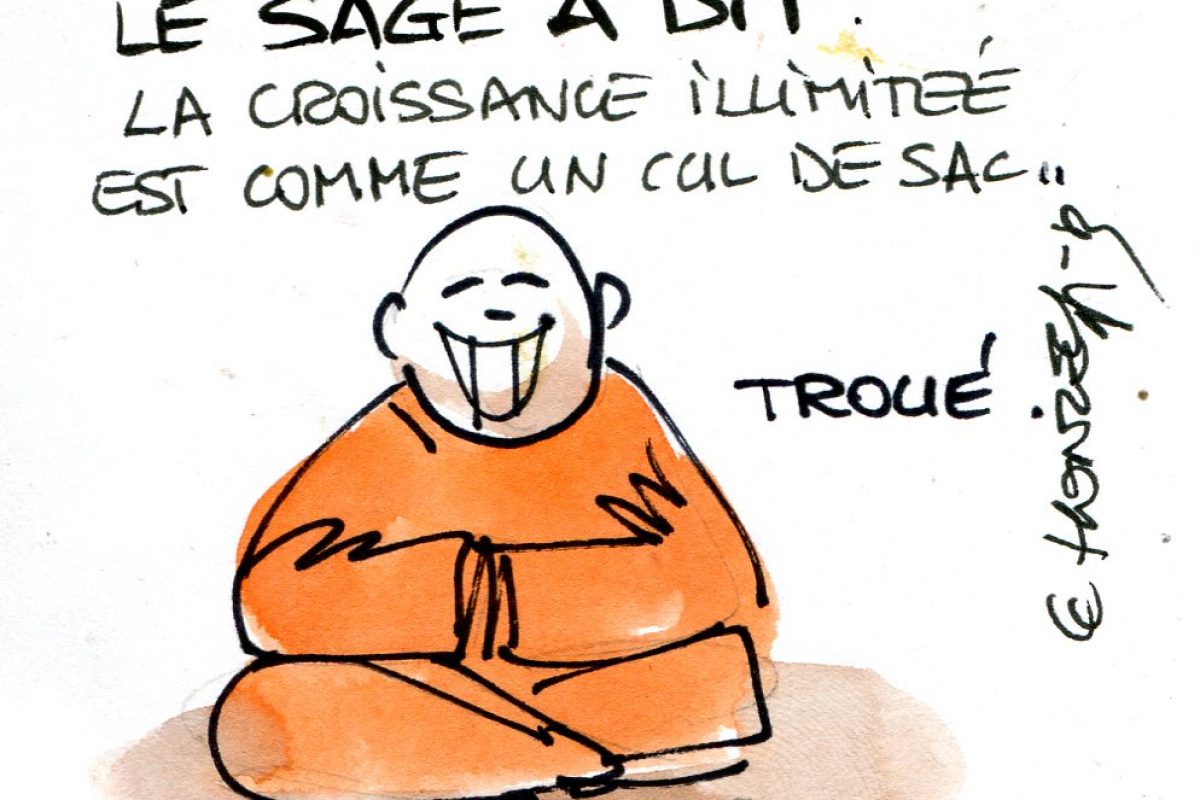 LE SAGE A DIT :
LA CROISSANCE ILLIMITÉE
EST COMME UN CUL DE SAC..
TROUÉ
©